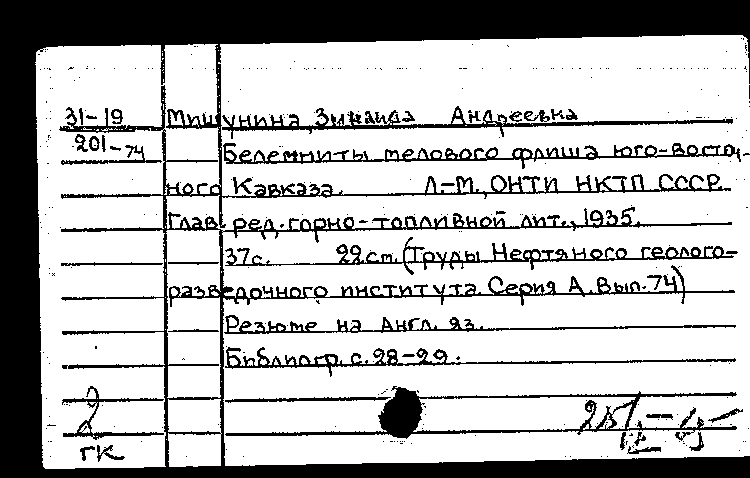 31-19 Мишунина, Зинаида Андреевна
201-74 Белемниты мелового флиша юго-восточ-
ного Кавказа. Л.-М., ОНТИ НКТП СССР.
Глав. ред. горно-топливной лит., 1935.
37с. 22см. (Труды Нефтяного геолого-
разведочного института. Серия А. Вып. 74)
Резюме на англ. яз.
Библиогр. с. 28-29.
2
ГК